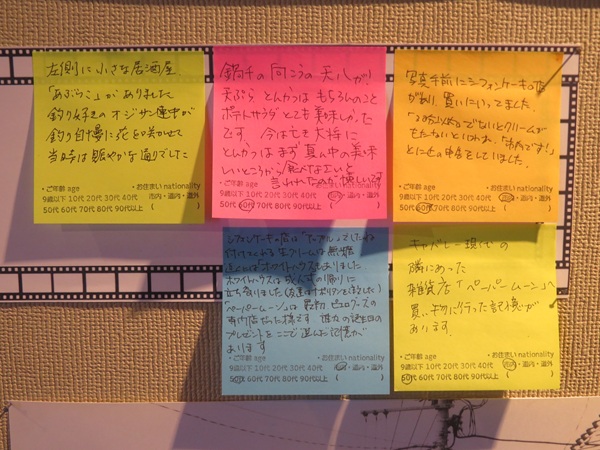 左側に小さな居酒屋
「あぶらこ」がありました
釣り好きのオジサン連中が
釣り自慢に花を咲かせて
当時は賑やかな通りでした
・ご年齢 age ・お住まい nationality
9歳以下 10代 20代 30代 40代 市内・道内・道外
50代 60代 70代 80代 90代以上 ( )
向こうの天八が!
天ぷら とんかつはもちろんのこと
ポテトサラダ とても美味しかった
です。今はも
とんかつはまず真ん中の美味
しいところから食べなさいと
言われたなぁ 懐しいです
・ご年齢 age ・お住まい nationality
9歳以下 10代 20代 30代 40代 市内・道内・道外
50代 60代 70代 80代 90代以上 ( )
写真手前にシフォンケーキの店
があり、買いにいってました。
でないとクリームが
もたないといわれ、
・ご年齢 age ・お住まい nationality
9歳以下 10代 20代 30代 40代 市内・道内・道外
50代 60代 70代 80代 90代以上 ( )
シフォンケーキの店は「アップル」でしたね
生クリームは無糖
ホワイトハウスもありました
ホワイトハウスは の帰りに
立ち寄りました
「ペーパームーン」は最初
専門店だった様です の誕生日の
プレゼントをここで選んだ記憶が
あります
・ご年齢 age ・お住まい nationality
9歳以下 10代 20代 30代 40代 市内・道内・道外
50代 60代 70代 80代 90代以上 ( )
キャバレー現代の
隣にあった
雑貨店「ペーパームーン」へ
買い物に行った記憶が
あります。
・ご年齢 age ・お住まい nationality
9歳以下 10代 20代 30代 40代 市内・道内・道外
50代 60代 70代 80代 90代以上 ( )